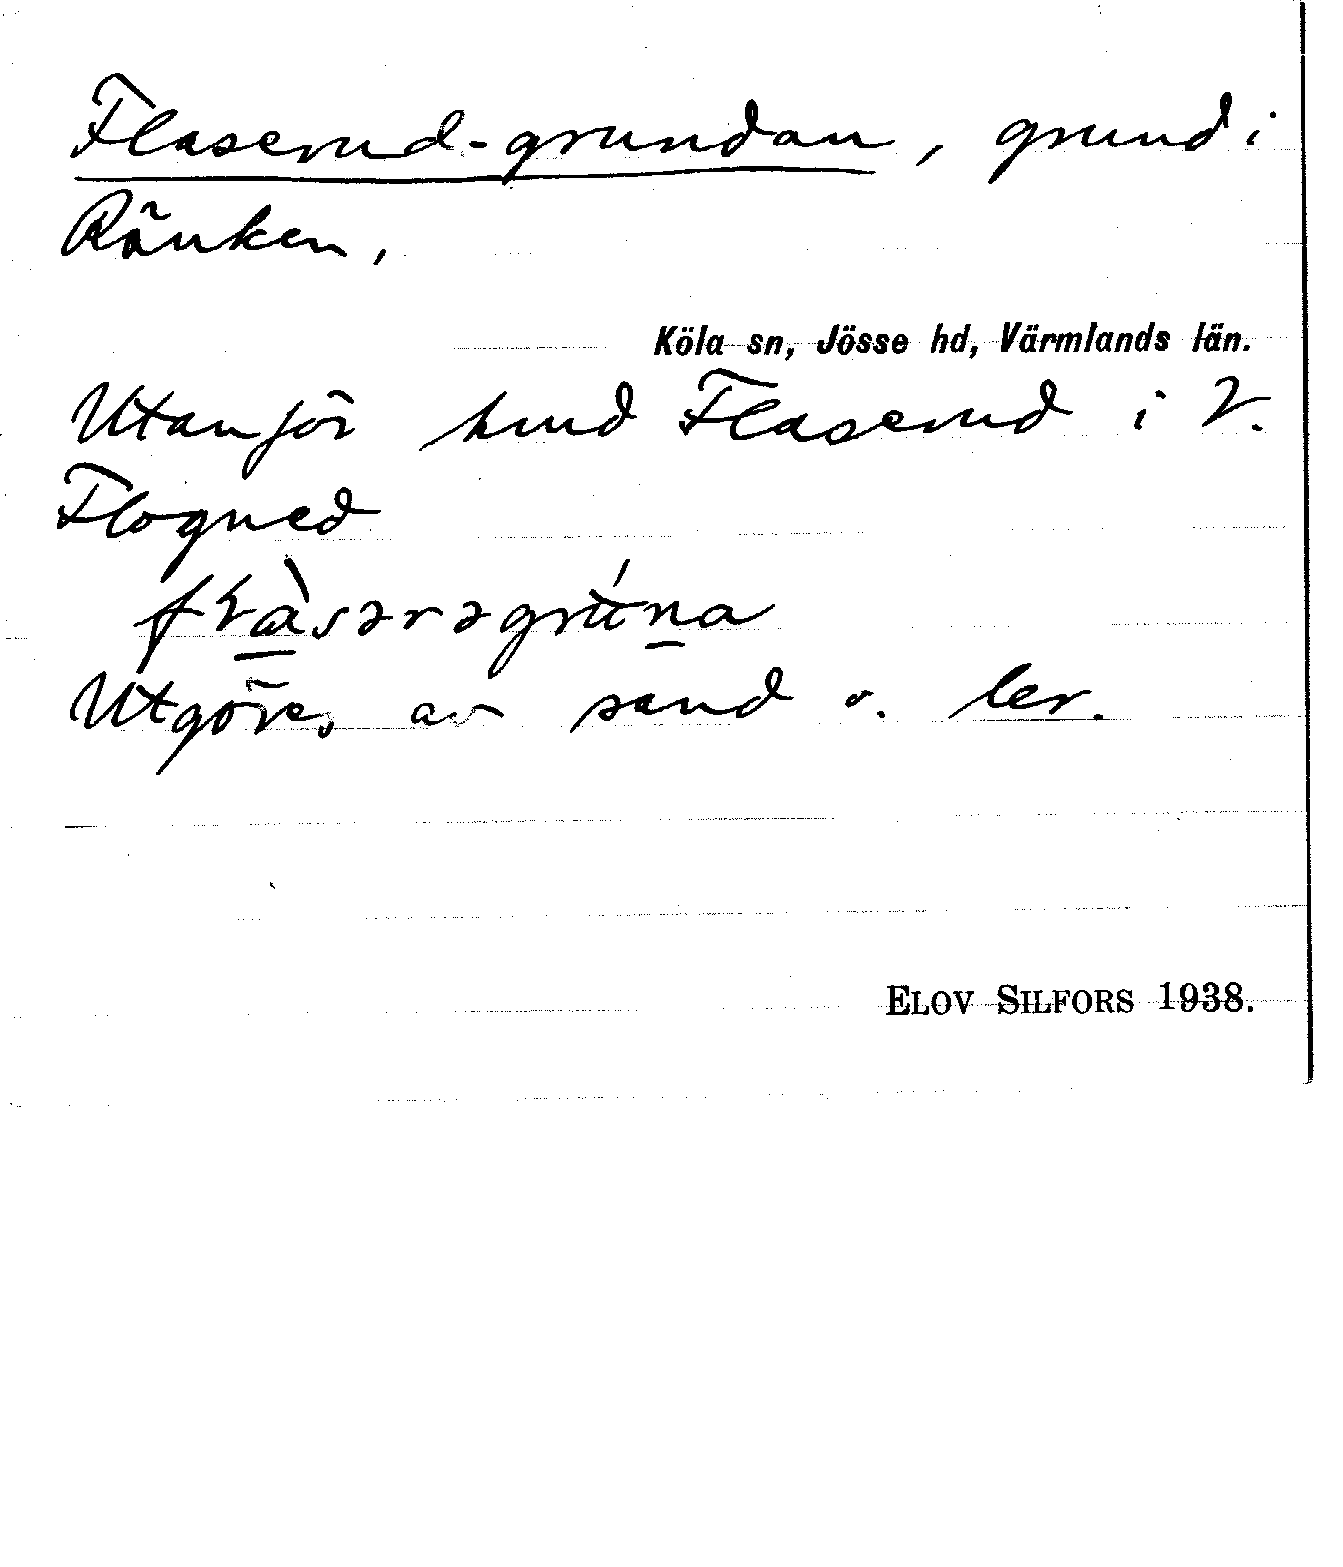 Flaserud-grundan, grund i
Ränken,
Köla sn, Jösse hd, Värmlands län.
Utanför hmd Flaserud i V.
Flogned
Utgöres av sand o. ler.
ELOV SILFORS 1938.